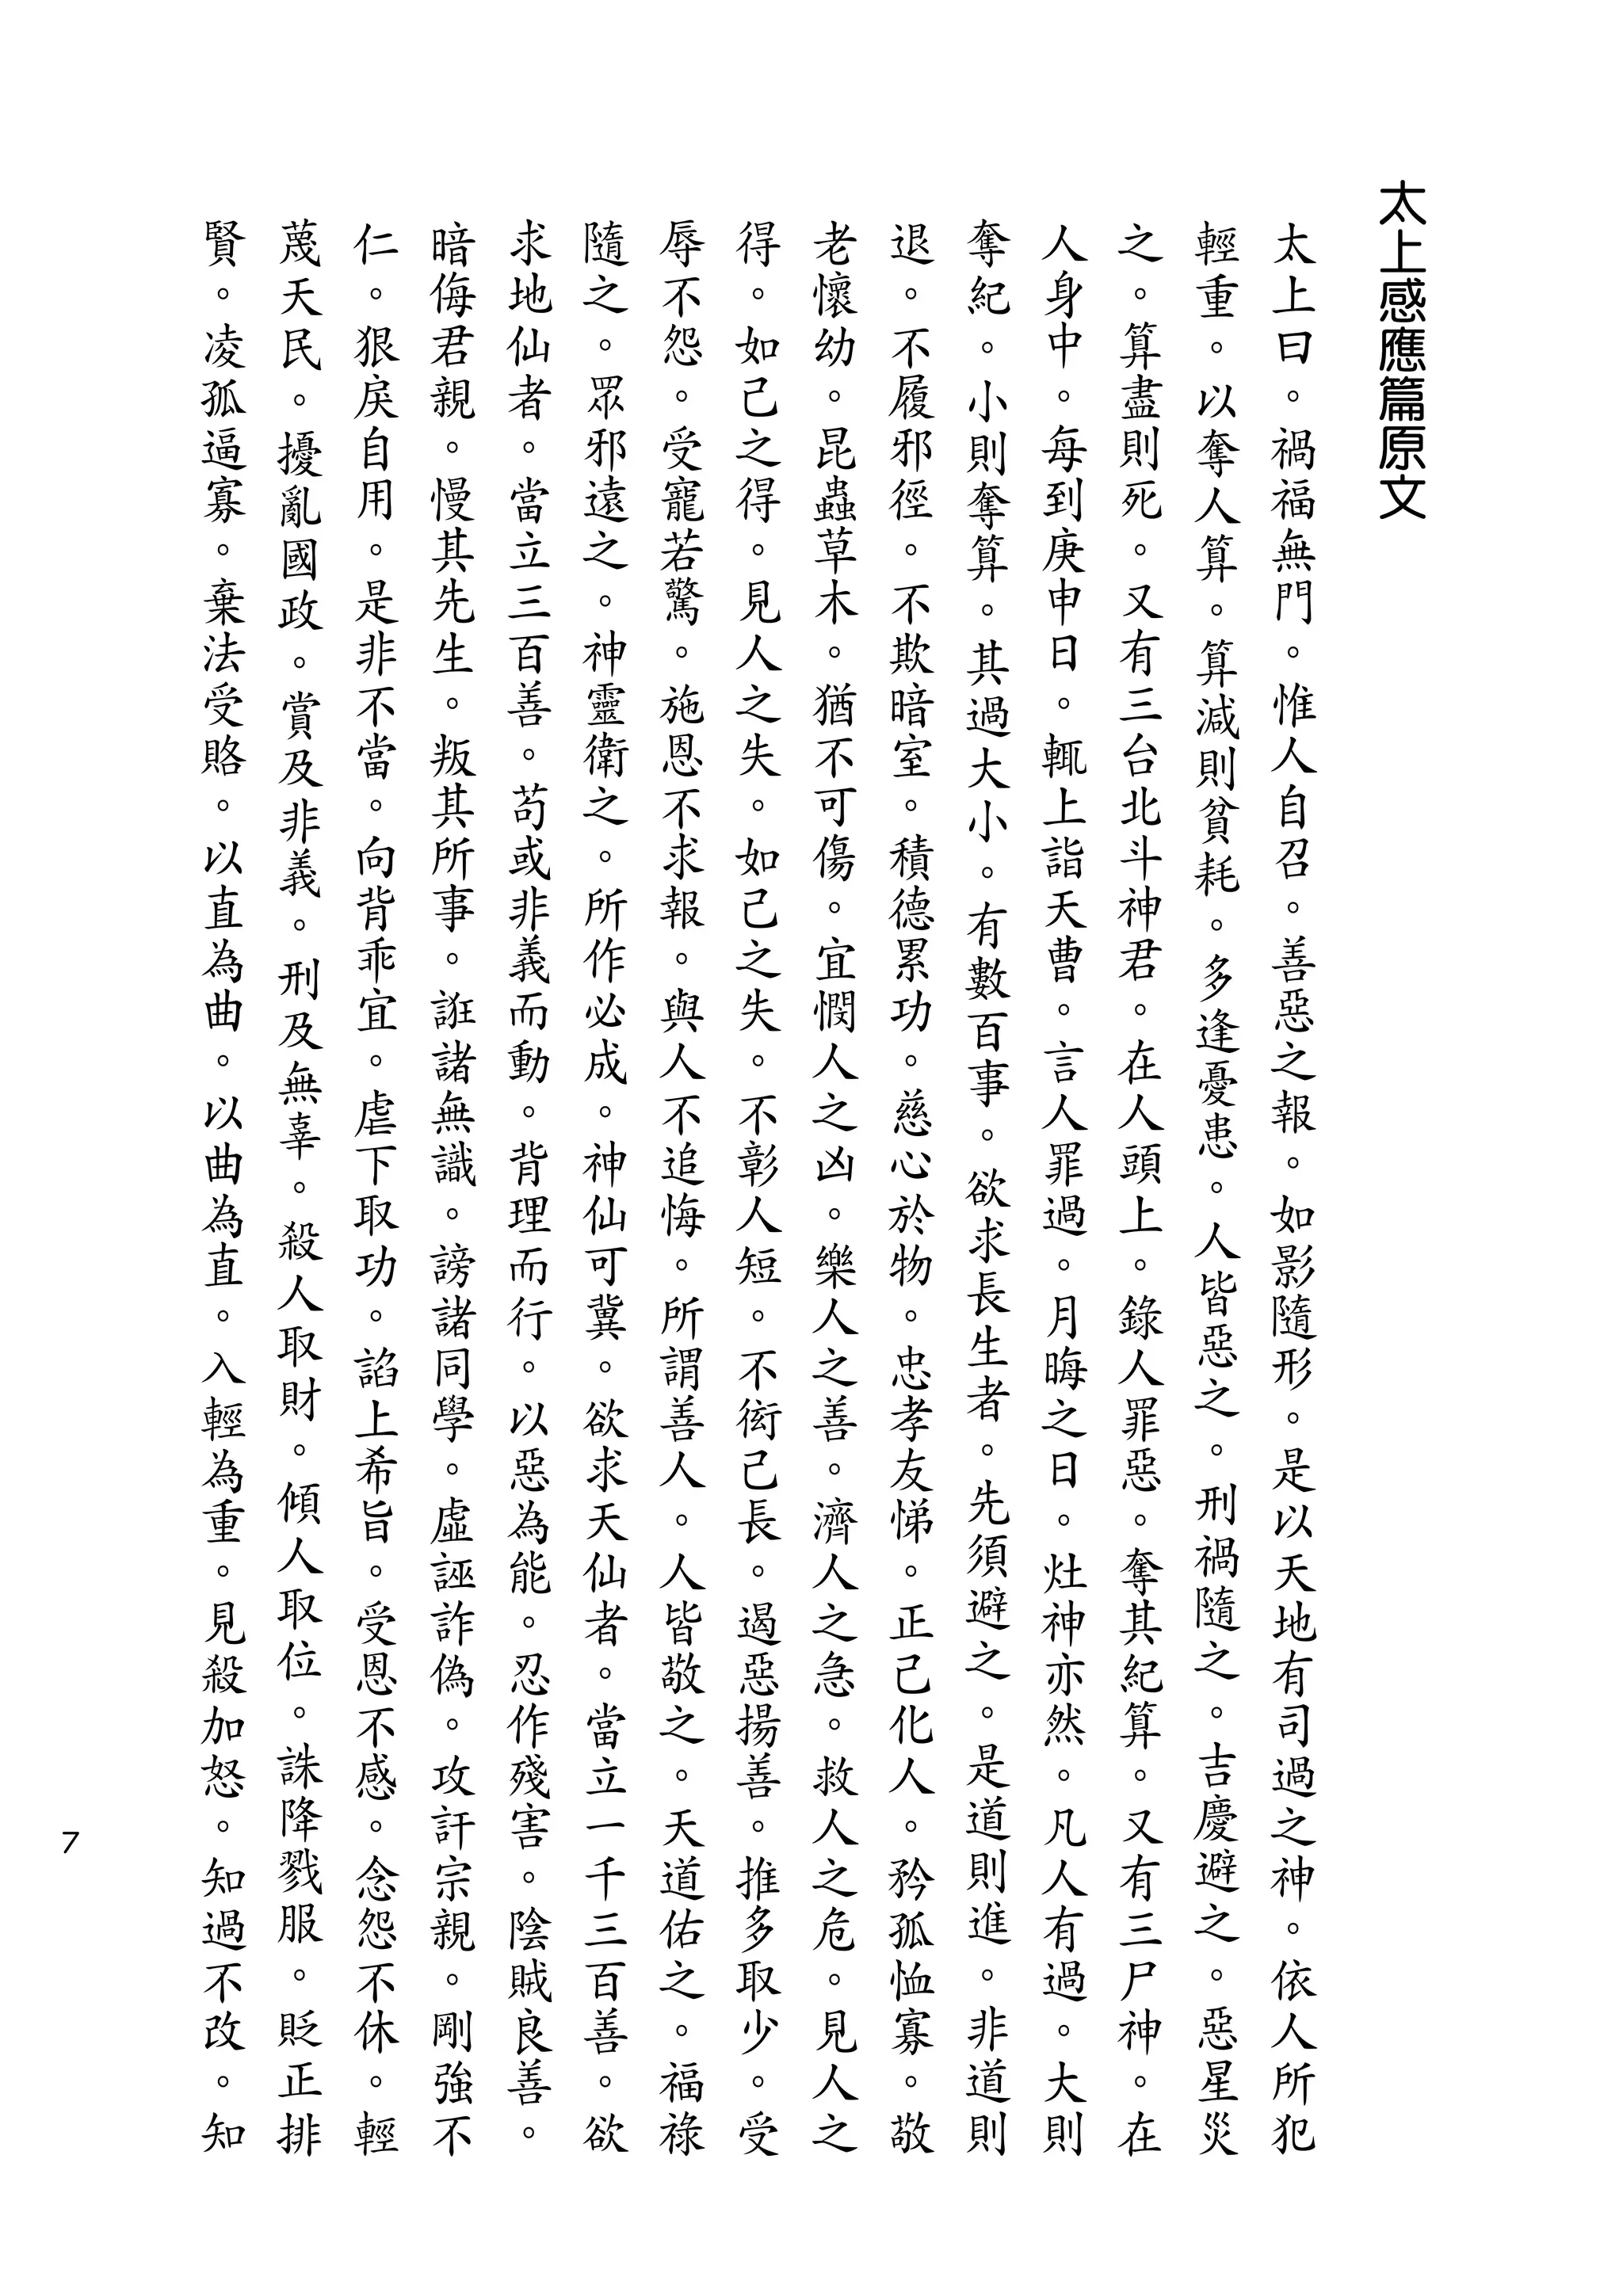 太上感應篇原文
太上曰。禍福無門。惟人自召。善惡之報。如影隨形。是以天地有司過之神。依人所犯
輕重。以奪人算。算減則貧耗。多逢憂患。人皆惡之。刑禍隨之。吉慶避之。惡星災
之。算盡則死。又有三台北斗神君。在人頭上。錄人罪惡。奪其紀算。又有三尸神。在
人身中。每到庚申日。輒上詣天曹。言人罪過。月晦之日。灶神亦然。凡人有過。大則
奪紀。小則奪算。其過大小。有數百事。欲求長生者。先須避之。是道則進。非道則
退。不履邪徑。不欺暗室。積德累功。慈心於物。忠孝友悌。正己化人。矜孤恤寡。敬
老懷幼。昆蟲草木。猶不可傷。宜憫人之凶。樂人之善。濟人之急。救人之危。見人之
得。如己之得。見人之失。如己之失。不彰人短。不衒己長。遏惡揚善。推多取少。受
辱不怨。受寵若驚。施恩不求報。與人不追悔。所謂善人。人皆敬之。天道佑之。福祿
隨之。眾邪遠之。神靈衛之。所作必成。神仙可冀。欲求天仙者。當立一千三百善。欲
求地仙者。當立三百善。苟或非義而動。背理而行。以惡為能。忍作殘害。陰賊良善。
暗侮君親。慢其先生。叛其所事。誑諸無識。謗諸同學。虛誣詐偽。攻訐宗親。剛強不
仁。狠戾自用。是非不當。向背乖宜。虐下取功。諂上希旨。受恩不感。念怨不休。輕
蔑天民。擾亂國政。賞及非義。刑及無辜。殺人取財。傾人取位。誅降戮服。貶正排
賢。凌孤逼寡。棄法受賂。以直為曲。以曲為直。入輕為重。見殺加怒。知過不改。知
7